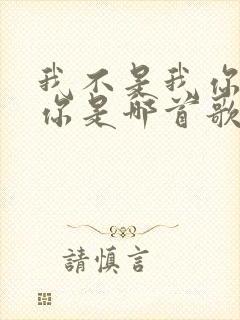 我不是我你
你是哪首歌
請慎言